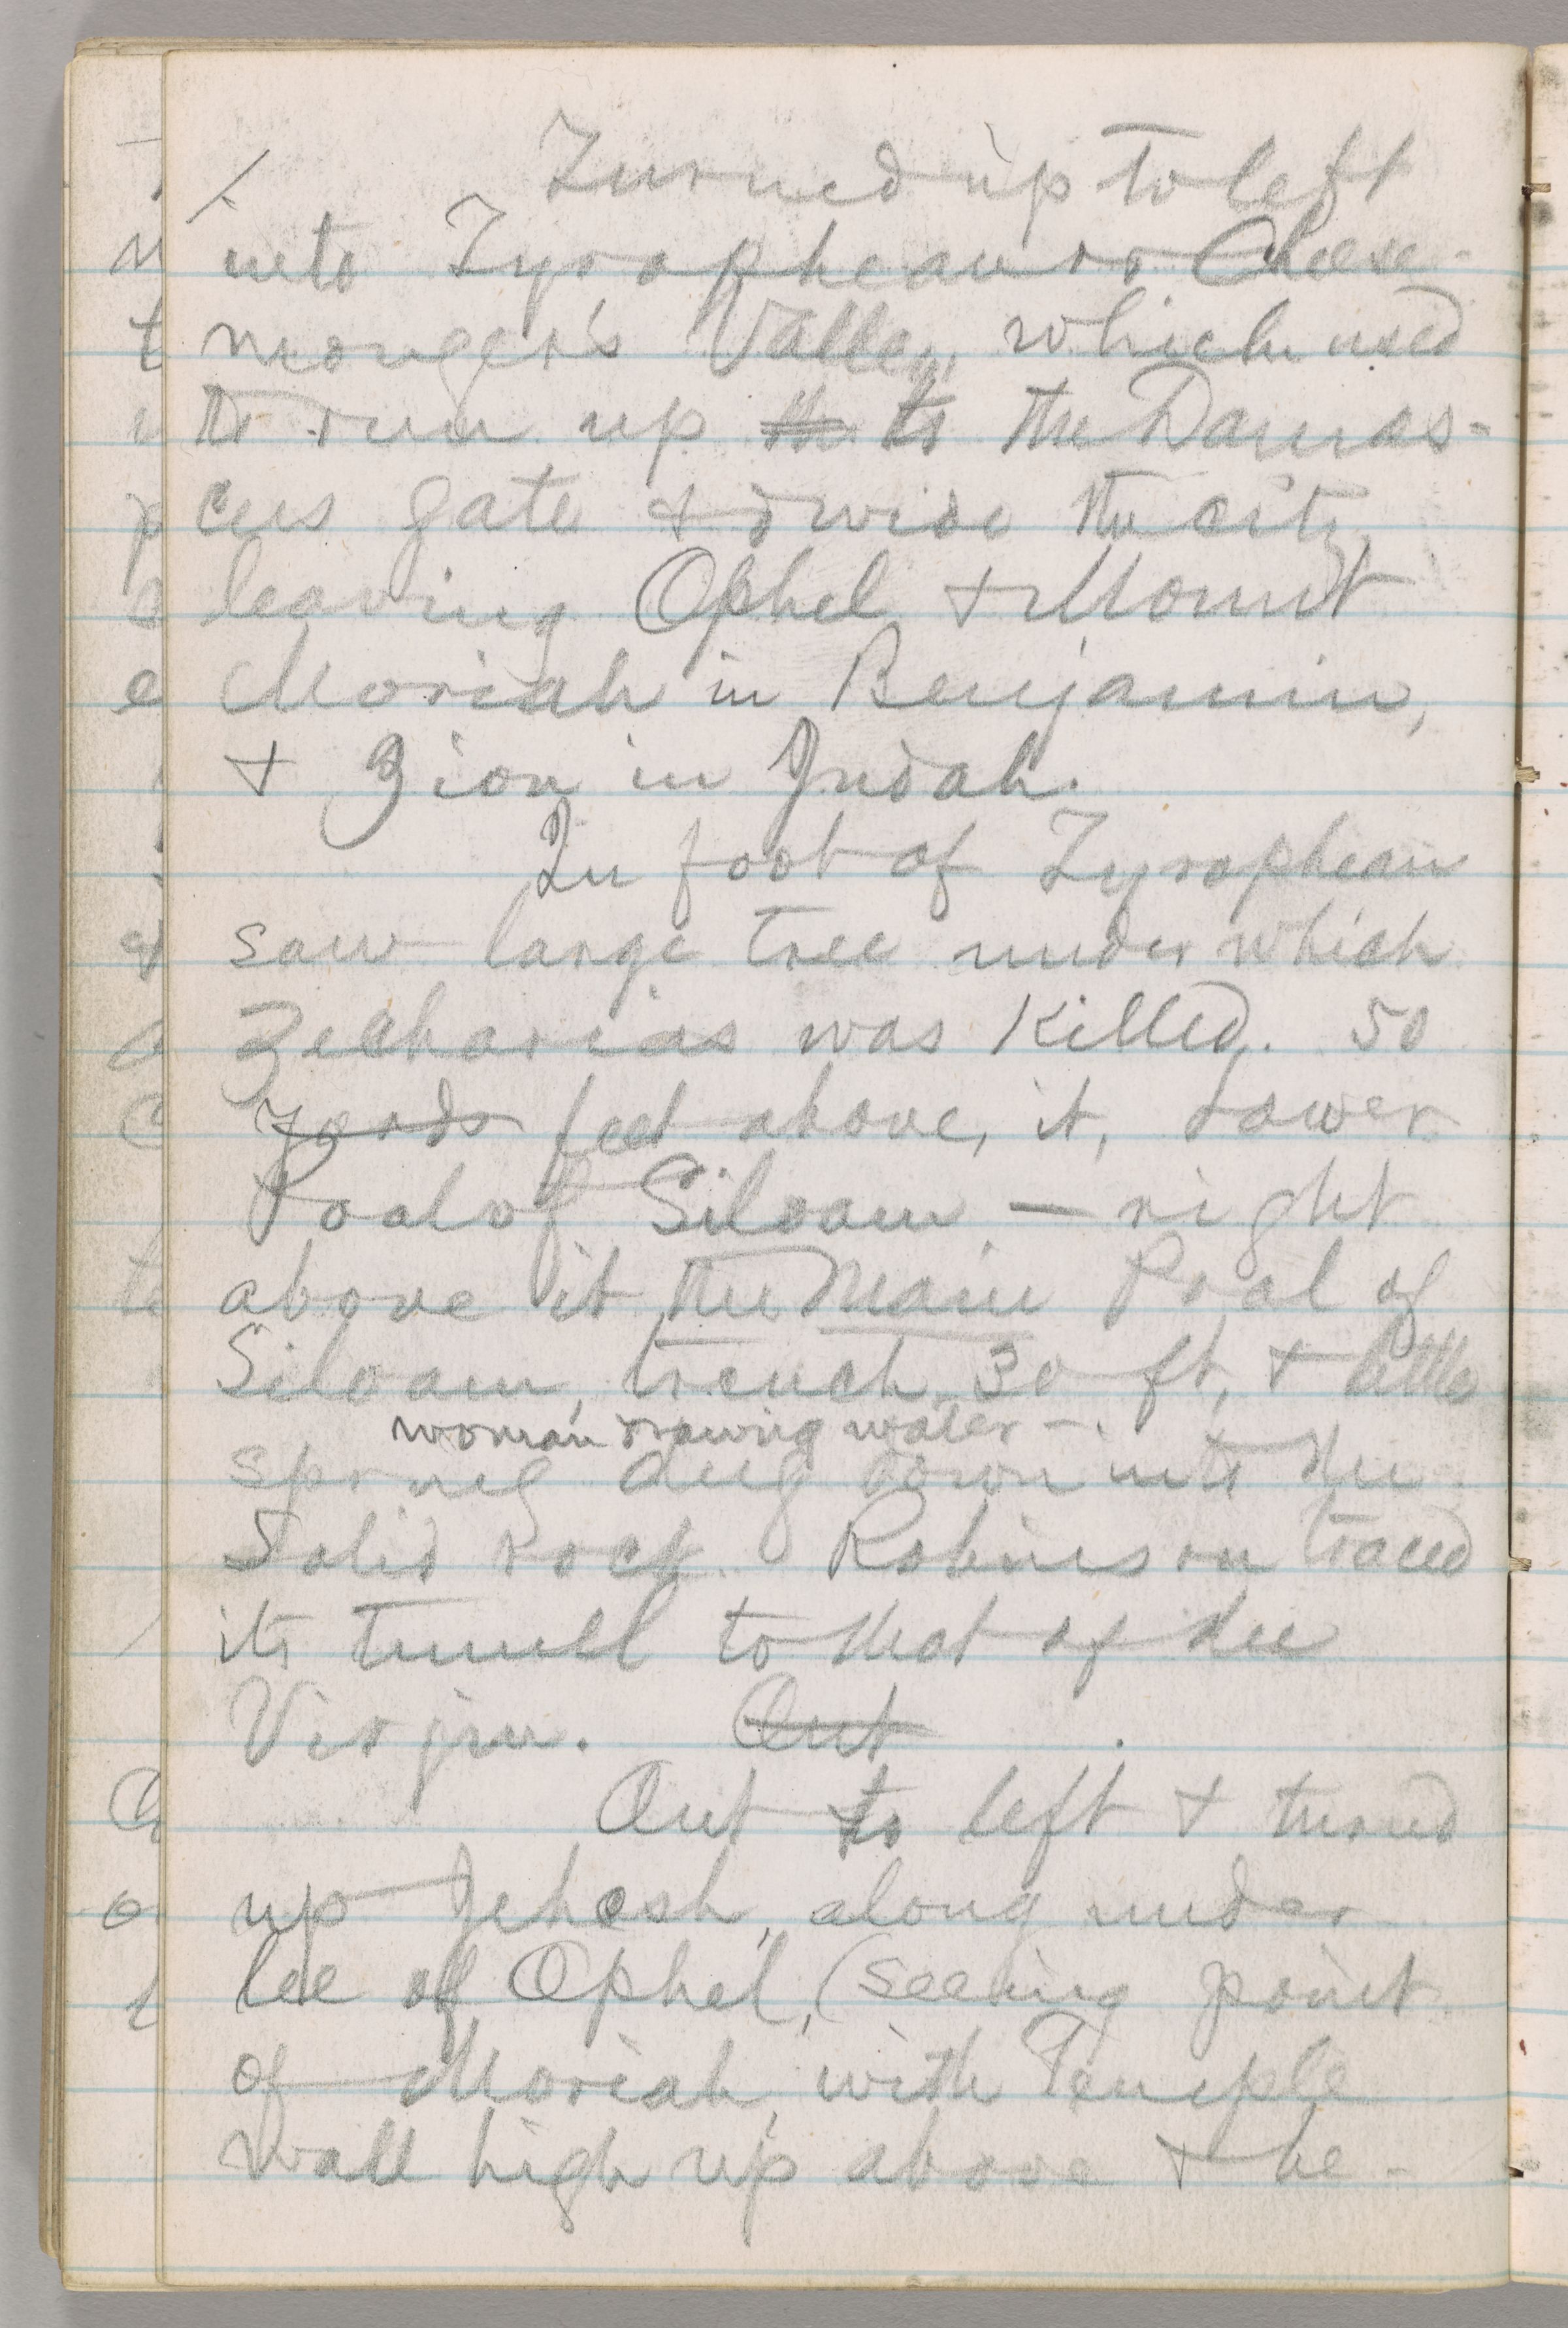 Turned up to left
into Tyrophean or Cheese-
monger's Valley, which used
to run up th to the Damas-
cus gate & divide the city,
leaving Ophel & Mount
Moriah in Benjamin,
& Zion in Judah.
In foot of Tyrophean
saw large tree under which
Zecharias was killed. 50
yards feet above, it, Lower
Pool of Siloam — right
above it the Main Pool of
Siloam, trench 30 ft, & little
woman drawing water —
spring dug down into the
Solid rock. Robinson traced
its tunell to that of the
Virgin. Out
Out to left & turned
up Jehosh, along under
lee of Ophel, (seeing point
of Moriah, with Temple
wall high up above & be-